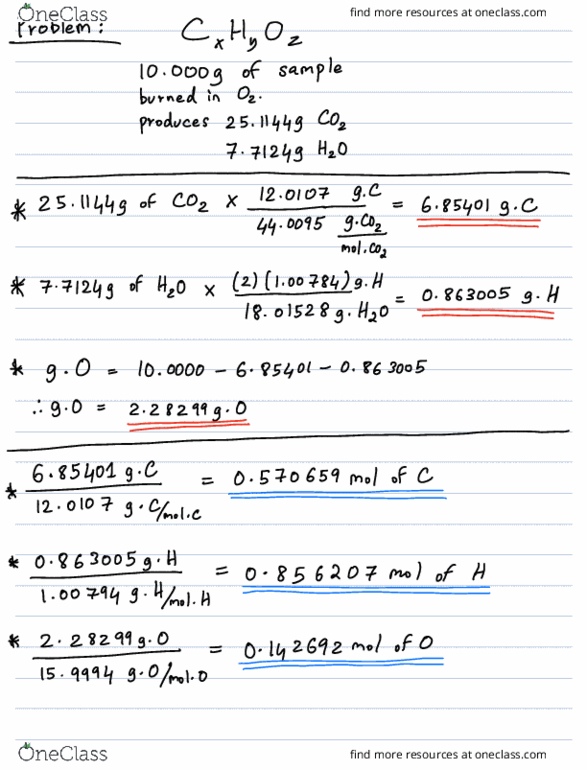 OneClass
find more resources at oneclass.com
Problem:
CxHyOz
10.000g of sample
burned in O2.
produces 25.1144g CO2
7.7124g H2O
* 25.1144g of CO2 x 12.0107 g.C / 44.0095 g.CO2/mol.CO2 = 6.85401 g.C
* 7.7124g of H2O x (2)(1.00784)g.H / 18.01528 g.H2O = 0.863005 g.H
* g.O = 10.0000 - 6.85401 - 0.863005
∴ g.O = 2.28299g.O
* 6.85401 g.C / 12.0107 g.C/mol.C = 0.570659 mol of C
* 0.863005g.H / 1.00794 g.H/mol.H = 0.856207 mol of H
* 2.28299g.O / 15.9994 g.O/mol.O = 0.142692 mol of O
OneClass
find more resources at oneclass.com